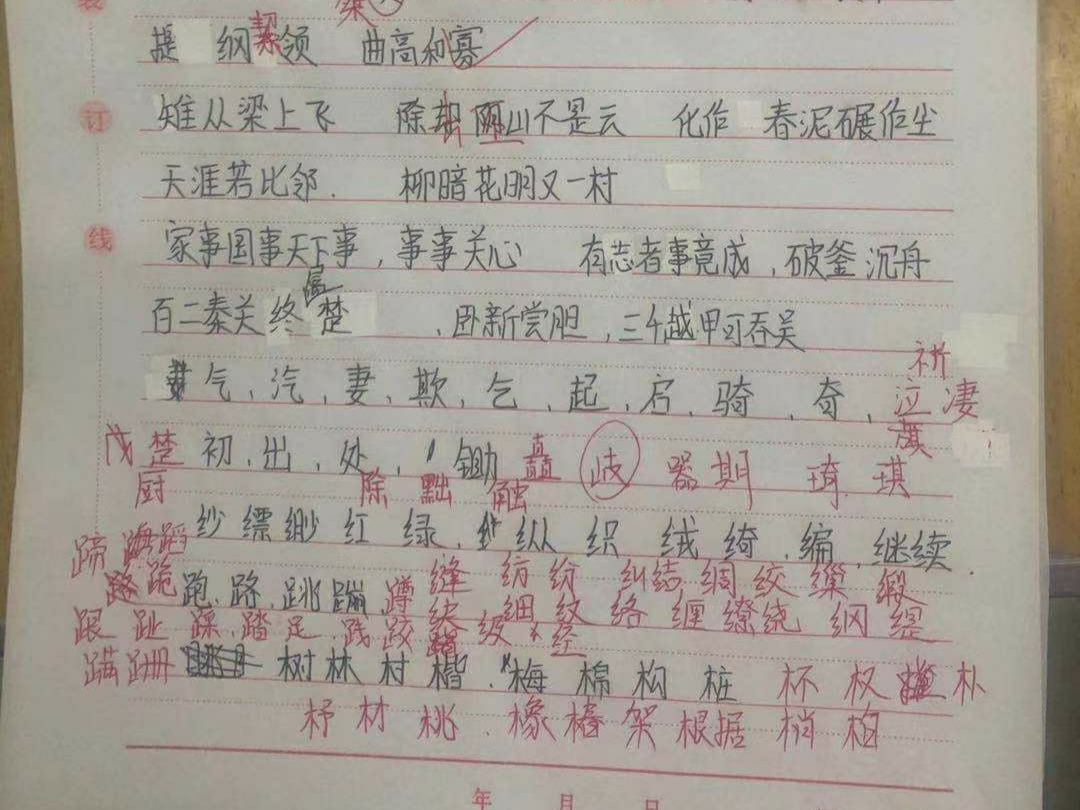 装
提 纲 挈 领 曲高和寡
订 雉从梁上飞 除却巫山不是云 化作 春泥碾作尘
天涯若比邻. 柳暗花明又一村
线 家事国事天下事,事事关心 有志者事竟成,破釜沉舟
属
百二秦关终 楚 ,卧新尝胆,三千越甲可吞吴
祈
气,汽,妻,欺,乞,起,启,骑,奇,泣 凄
旗
戊 楚 初,出,处, 锄 矗 歧 器 期 琦 琪
厨 除 黜 触
纱 缥 缈 红 绿, 纵 织 绒 绮,编,继续.
蹄 蹈
跪 跑,路,跳 蹦 蹲 缝 纺 纷 纠结 绸 绞 缎
细 纹 络 缠 缭绕 纲
跟 趾 踝,踏 足,践 跤 级 经
蹒 跚 树 林 村 楷. 梅 棉 构 桩 杯 权 朴
杼 材 桃. 橡 椿 架 根据 梢 柏
年 月 日